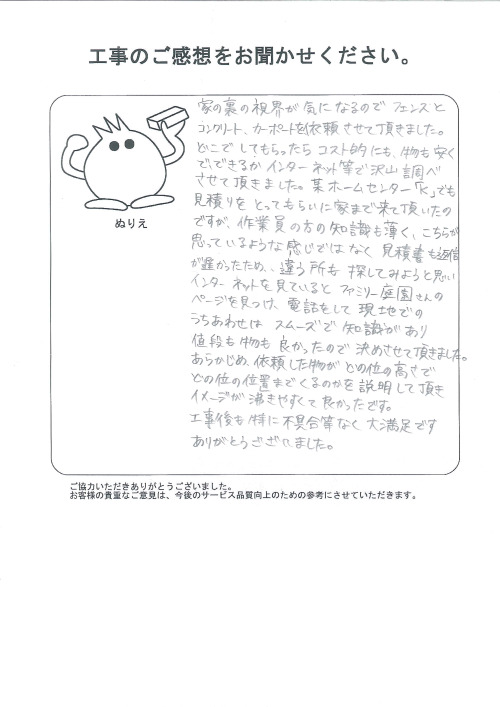 工事のご感想をお聞かせください。
家の裏の視界が気になるのでフェンスと
コンクリート、カーポートを依頼させて頂きました。
どこでしてもらったらコスト的にも、物も安く
でできるかインターネット等で沢山調べ
させて頂きました。某ホームセンター「K」でも
見積りをとってもらいに家まで来て頂いたの
ですが、作業員の方の知識も薄く、こちらが
思っているような感じではなく見積書も返信
が遅かったため、違う所も探してみようと思い
インターネットを見ているとファミリー庭園さんの
ページを見つけ、電話をして現地での
うちあわせはスムーズで知識があり
値段も物も良かったので決めさせて頂きました。
あらかじめ、依頼した物がどの位の高さで
どの位の位置までくるのかを説明して頂き
イメージが沸きやすくて良かったです。
工事後も特に不具合等なく大満足です
ありがとうございました。
ぬりえ
ご協力いただきありがとうございました。
お客様の貴重なご意見は、今後のサービス品質向上のための参考にさせていただきます。